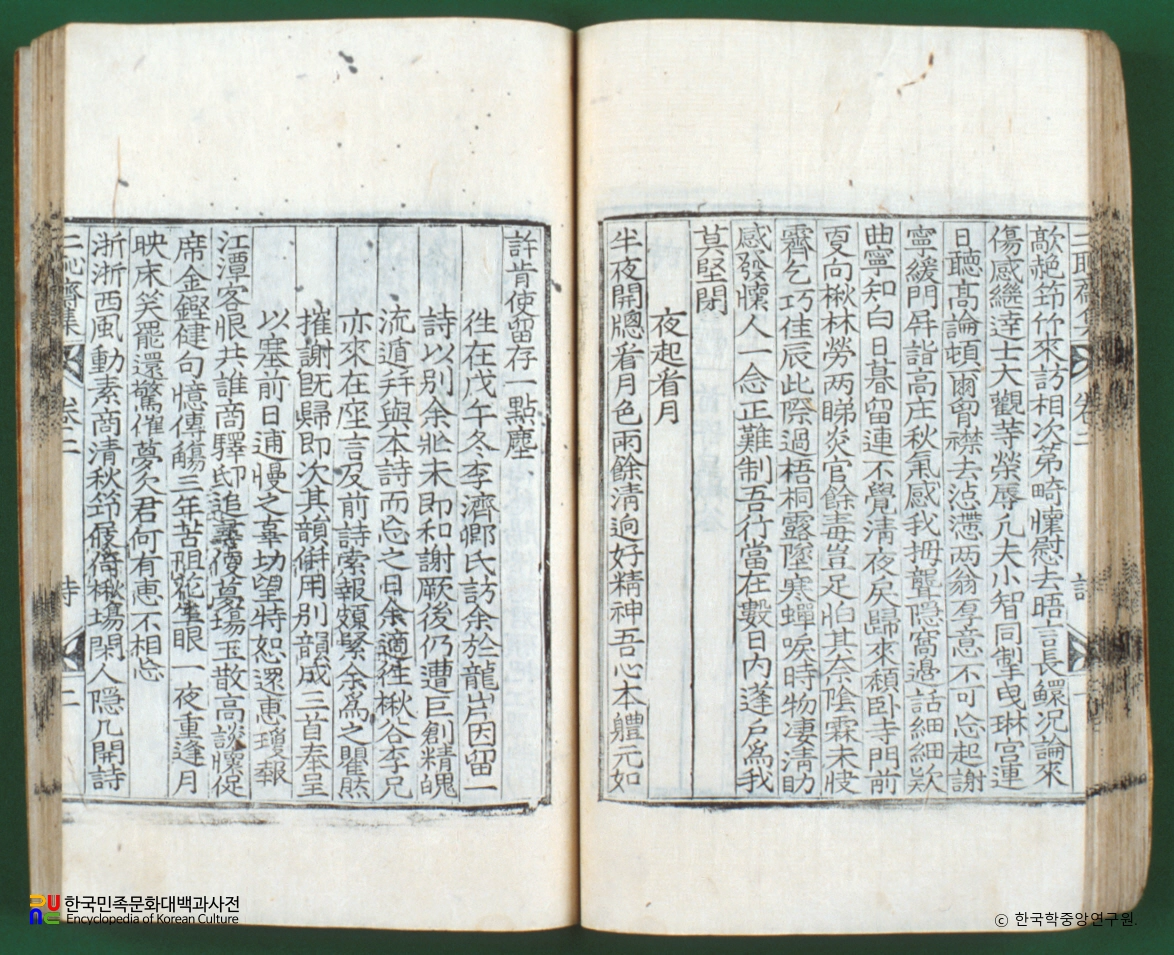 歊赩筇竹來訪相次第畸懷慰去晤言長鰥況論來
傷感纏達士大觀等榮辱凡夫小智同掣曳琳宮連
日聽高論頓爾胷襟去惉懘两翁享意不可忘起謝
寧緩門屛詣高庄秋氣感我拇聾隱窩邊話細細欵
曲寧知白日暮留連不覺淸夜戾歸來穨卧寺門前
夏向楸林勞两睇炎官餘毒豈足怕其奈陰霖未快
霽乞巧佳辰此際過梧桐露墜寒蟬唳時物凄淸助
感發懷人一念正難制吾行當在數日內蓬戶爲我
莫堅閉
夜起看月
半夜開牕看月色雨餘淸逈好精神吾心本軆元如
許肯使留存一點塵
徃在戊午冬李濟卿氏訪余於龍片因留一
詩以別余雖未即和謝厥後仍遭巨創精魄
流遁幷與本詩而忘之日余適徃楸谷李兄
亦來在座言及前詩索報頗緊余爲之瞿然
摧謝旣歸即次其韻倂用別韻成三首奉呈
以塞前日逋慢之辜切望特恕還惠瓊報
江潭客恨共誰商驛邸追
夢場玉散高談懷促
席金鏗健句憶傳觴三年苦阻花生眼一夜重逢月
映床笑罷還驚催夢欠君何有惠不相忘
浙浙西風動素商清秋筇屐倚楸場閑人隱几開詩
二恥齋集
卷二
詩
二
한국민족문화대백과사전
Encyclopedia of Korean Culture
© 한국학중앙연구원.